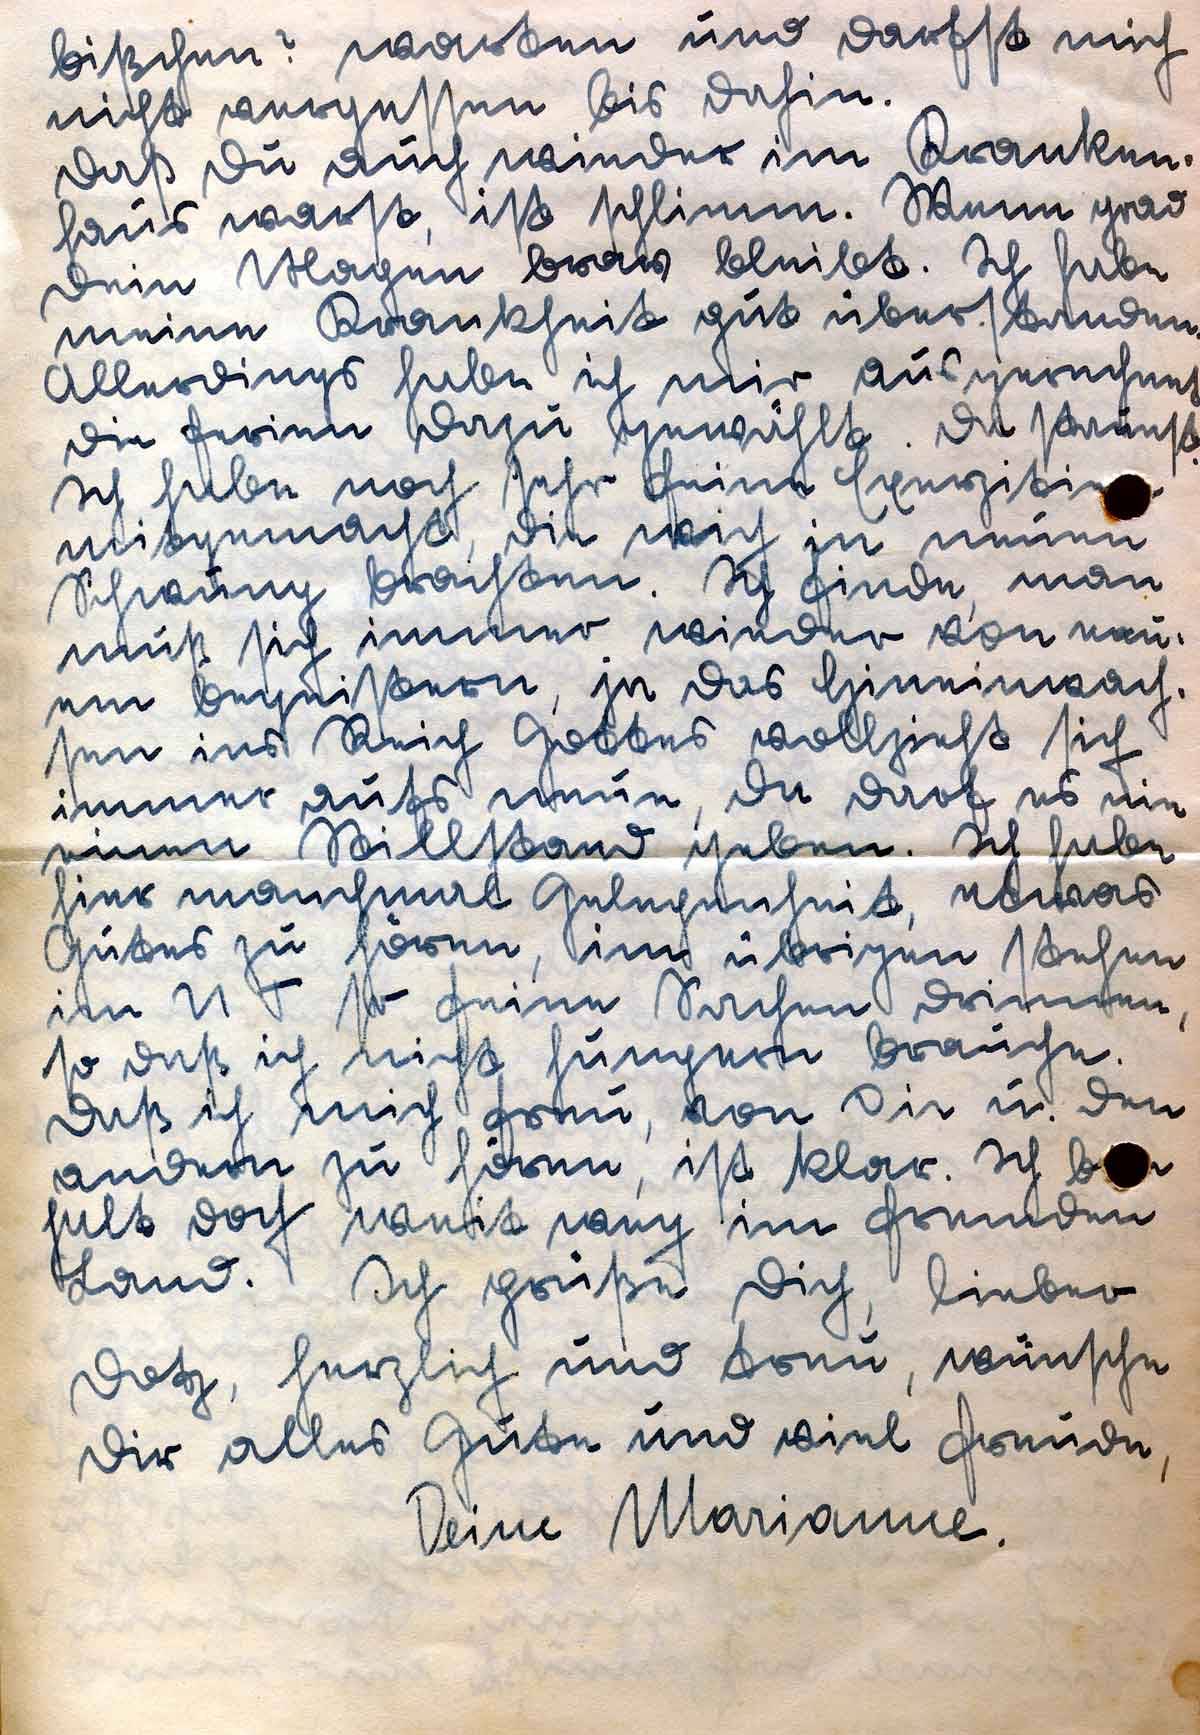 bißchen? warten und darfst mich
nicht vergessen bis dahin.
Daß Du auch wieder im Kranken-
haus warst, ist schlimm. Wenn grad
Dein Magen brav bleibt. Ich habe
meine Krankheit gut überstanden.
Allerdings habe ich mir ausgerechnet
die Ferien dazu gewählt. Du staunst.
Ich habe noch sehr feine Exerzitien
mitgemacht, die mich in neuen
Schwung brachten. Ich finde, man
muß sich immer wieder von neu-
em begeistern, ja das Hineinwach-
sen ins Reich Gottes vollzieht sich
immer aufs neue, da darf es nie
einen Stillstand geben. Ich habe
hier manchmal Gelegenheit, etwas
Gutes zu hören, im übrigen stehen
im N T so feine Sachen drinnen,
so daß ich nicht hungern brauche.
Daß ich mich freu, von Dir u. den
andern zu hören, ist klar. Ich bin
halt doch weit weg im fremden
Land. Ich grüße Dich, lieber
Dotz, herzlich und treu, wünsche
Dir alles Gute und viel Freude,
Deine Marianne.